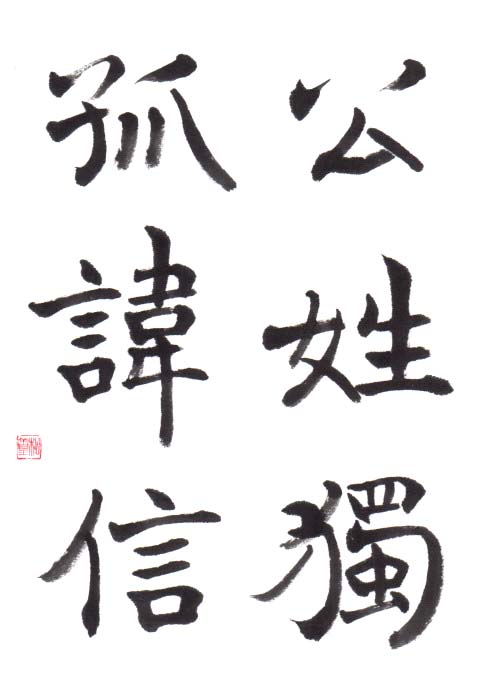 公姓獨
孤諱信